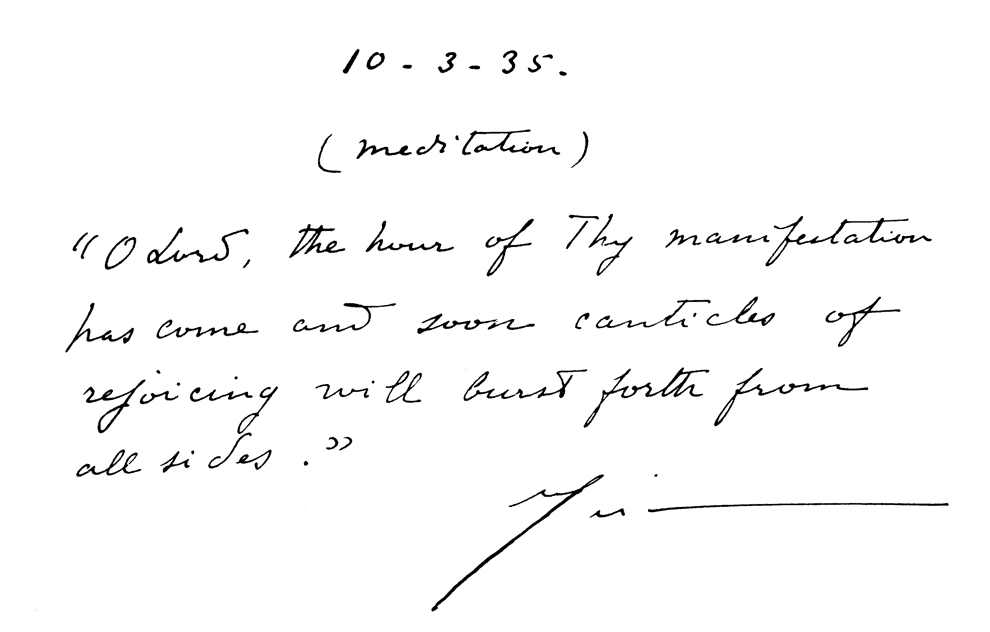 10 - 3 - 35.
(meditation)
"O Lord, the hour of Thy manifestation
has come and soon canticles of
rejoicing will burst forth from
all sides."